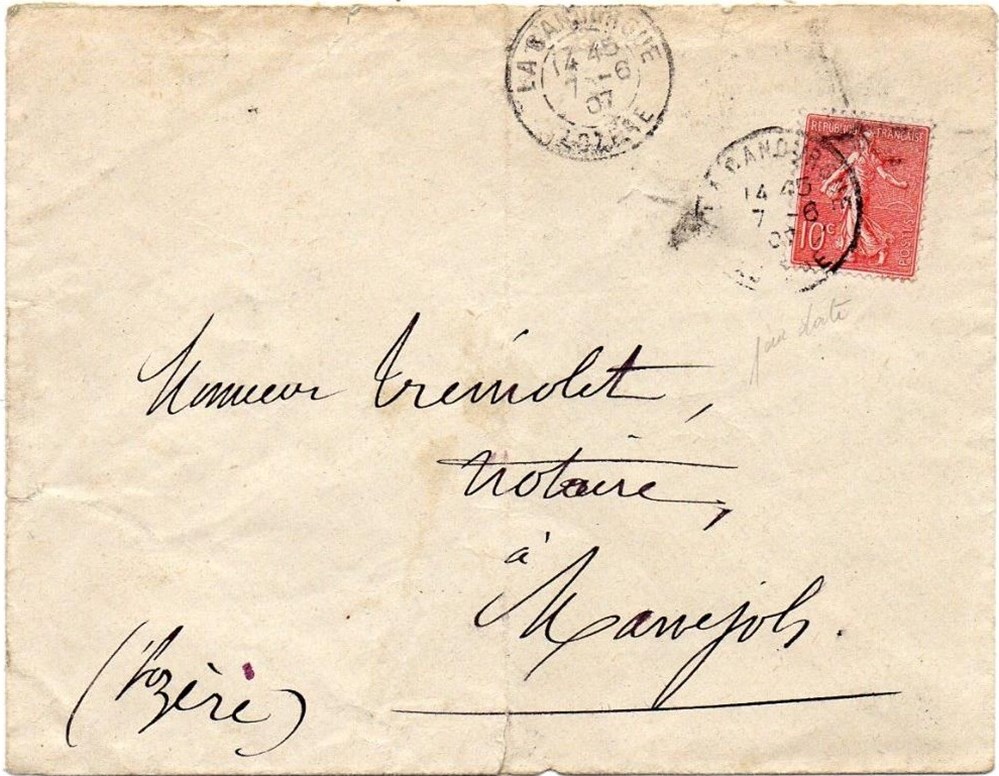 LA CANOURGUE
14 45
7 -6
07
LOZERE
REPUBLIQUE FRANÇAISE
10c
POSTES
LA CANOURGUE
14 45
7 -6
LOZERE
Monsieur Tremolet,
Notaire,
à
Marvejols.
(Lozère)